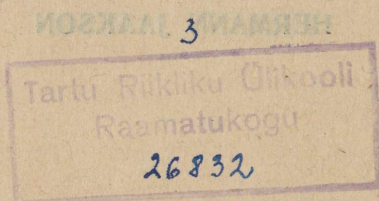 HERMANN JAAKSON
3
Tartu Riikliku Ülikooli
Raamatukogu
26832